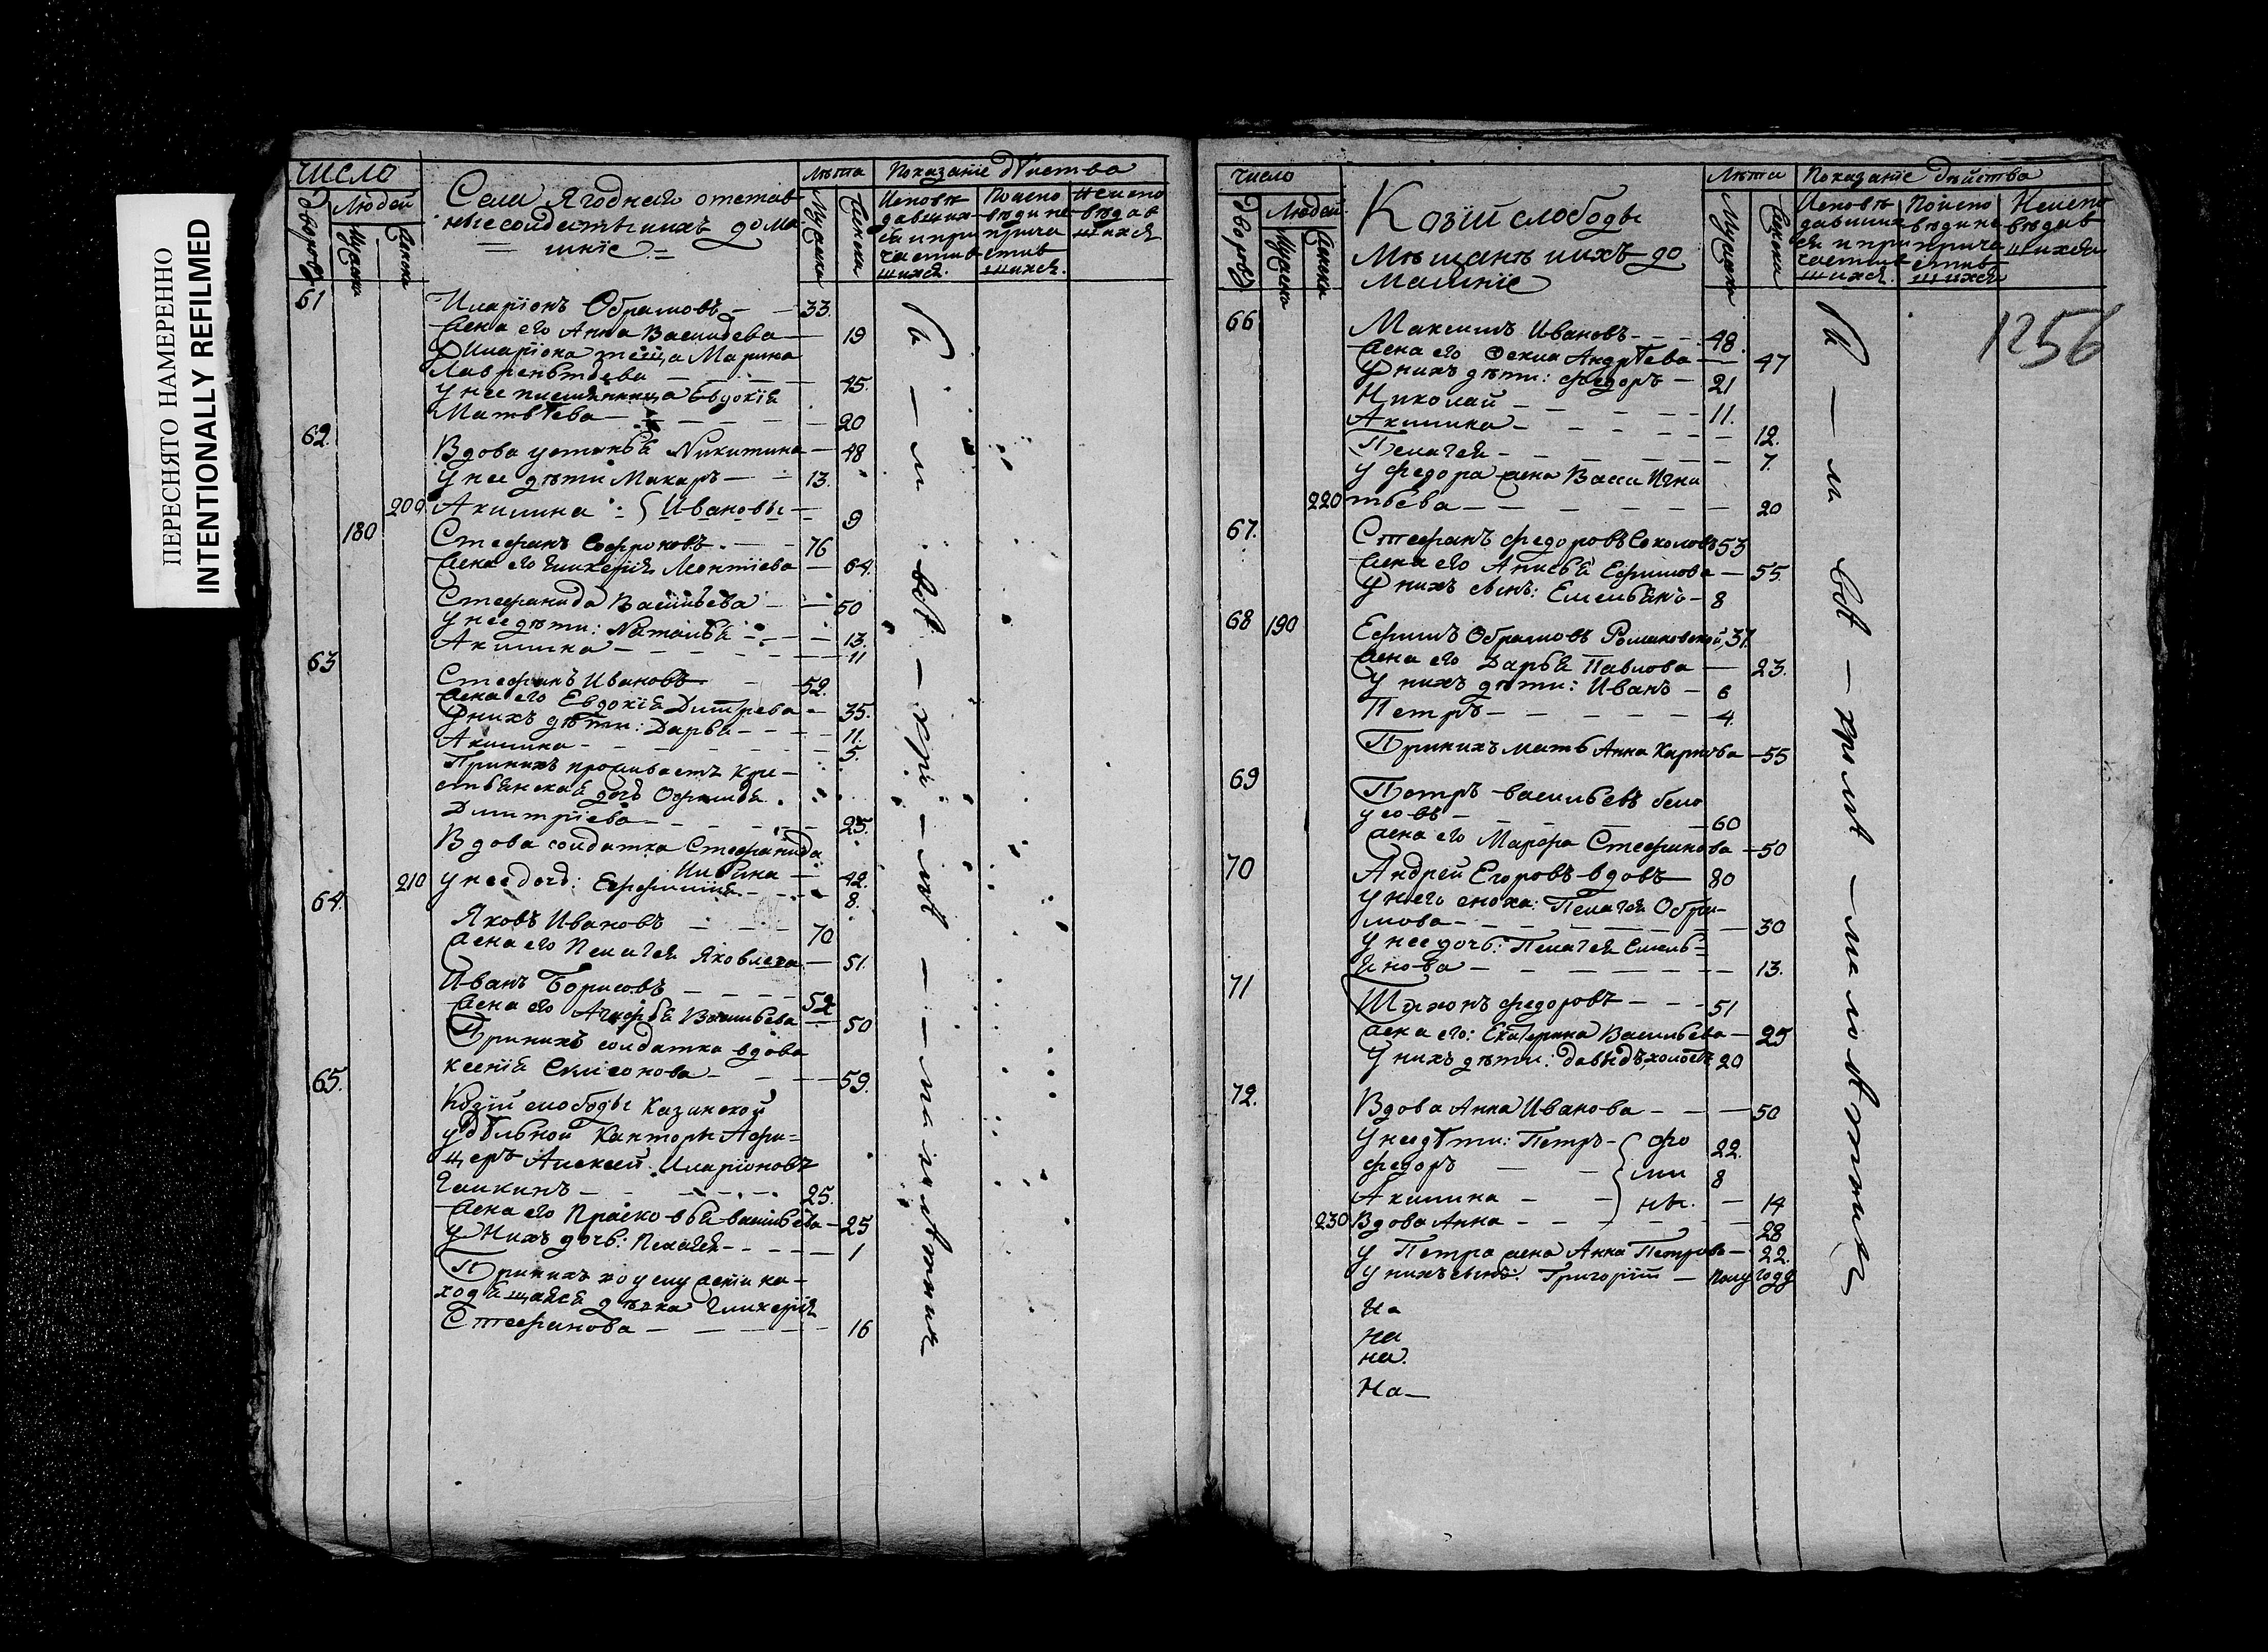 ПЕРЕСНЯТО НАМЕРЕННО
INTENTIONALLY REFILMED
число
Дворовъ
Людей
Мужеска
Женска
Села Ягоднаго отстав
ные солдаты и ихъ дома
шніе
лѣта
Мужеска
Женска
Показаніе дѣйства
Исповѣ
давших
ся и при
частив
шихся.
По испо
вѣди не
прича
стив
шихся.
Не испо
вѣдав
шихся
61 Иларіонъ Обрамовъ 33.
Жена его Анна Васильева 19
У Иларіона теща Марина
Лаврентьева 45.
У нее племянница Евдокія
Матвѣева 20
62. Вдова устинья Никитина 48
У нее дѣти Макаръ 13.
209 Акилина Ивановы 9
180 Стефанъ Софроновъ 76
Жена его Гликерія Леонтіева 64.
Стефанида Васильева 50
У нее дѣти: Наталья 13.
Акилина 11
63 Стефанъ Ивановъ 52.
Жена его Евдокія Дмитрева 35.
У нихъ дѣти: Дарья 11.
Акилина 5.
При нихъ проживаетъ кре-
стьянская дочь
Димитріева 25.
Вдова солдатка Стефанида
42.
210 у нее дочь: 8.
64. Яковъ Ивановъ 70
Жена его Пелагея Яковлева 51.
Иванъ Борисовъ 52
Жена его Васильева 50
При нихъ солдатка вдова
Ксенія Симеонова 59.
65. Козій слободы Казанской
удѣльной Канторы Афи-
церъ Алексей Иларіоновъ
Галкинъ 25.
Жена его Прасковья васильева 25
У Нихъ дочь: Пелагея 1
При нихъ по
ходящаяся дѣвка Гликерія
Стефанова 16
число
Дворовъ
Людей
Мужеска
Женска
Козій слободы
Мѣщанъ и ихъ до
Машніе
Лѣта
Мужеска
Женска
Показаніе дѣйства
Исповѣ
давших
ся и при
частив
шихся.
По испо
вѣди не
приче
стив
шихся
Неиспо
вѣдав
шихся
1256
66 Максимъ Ивановъ 48.
Жена его Фекла Андрѣева 47
У нихъ дѣти: Федоръ 21
Николай 11.
Акилина 12.
Пелагея 7.
у Федора жена Васса Игна
220 тьева 20
67. Стефанъ Федоровъ Соколовъ 53
Жена его Анисья Ефимова 55
У нихъ сынъ: Емельянъ 8
68 190 Ефимъ Обрамовъ Романовской, 37.
Жена его Дарья Павлова 23.
У нихъ дѣти: Иванъ 6
Петръ 4.
При нихъ мать Анна Карпова 55
69 Петръ васильевъ бело
усовъ 60
Жена его Марфа Стефанова 50
70 Андрей Егоровъ вдовъ 80
У него сноха: Пелагея Обра-
мова 30
У нее дочь: Пелагея Емель-
янова 13.
71 Тихонъ Федоровъ 51
Жена его: Екатерина Васильева 25
У нихъ дѣти: давыдъ, холостъ 20
72. Вдова Анна Иванова 50
У нее дѣти: Петръ Фо 22.
Федоръ ми 8
Акилина ны. 14
230 Вдова Анна 28
у Петра жена Анна Петрова 22.
У нихъ сынъ: Григорій полу году
На
На
на.
На